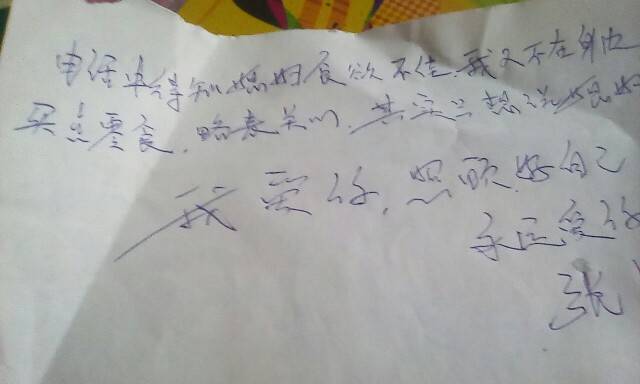 电话中得知妈妈食欲不佳,我又不在身边
买点零食,略表关心,其实只想说妈妈
我爱你,照顾好自己
永远爱你
张